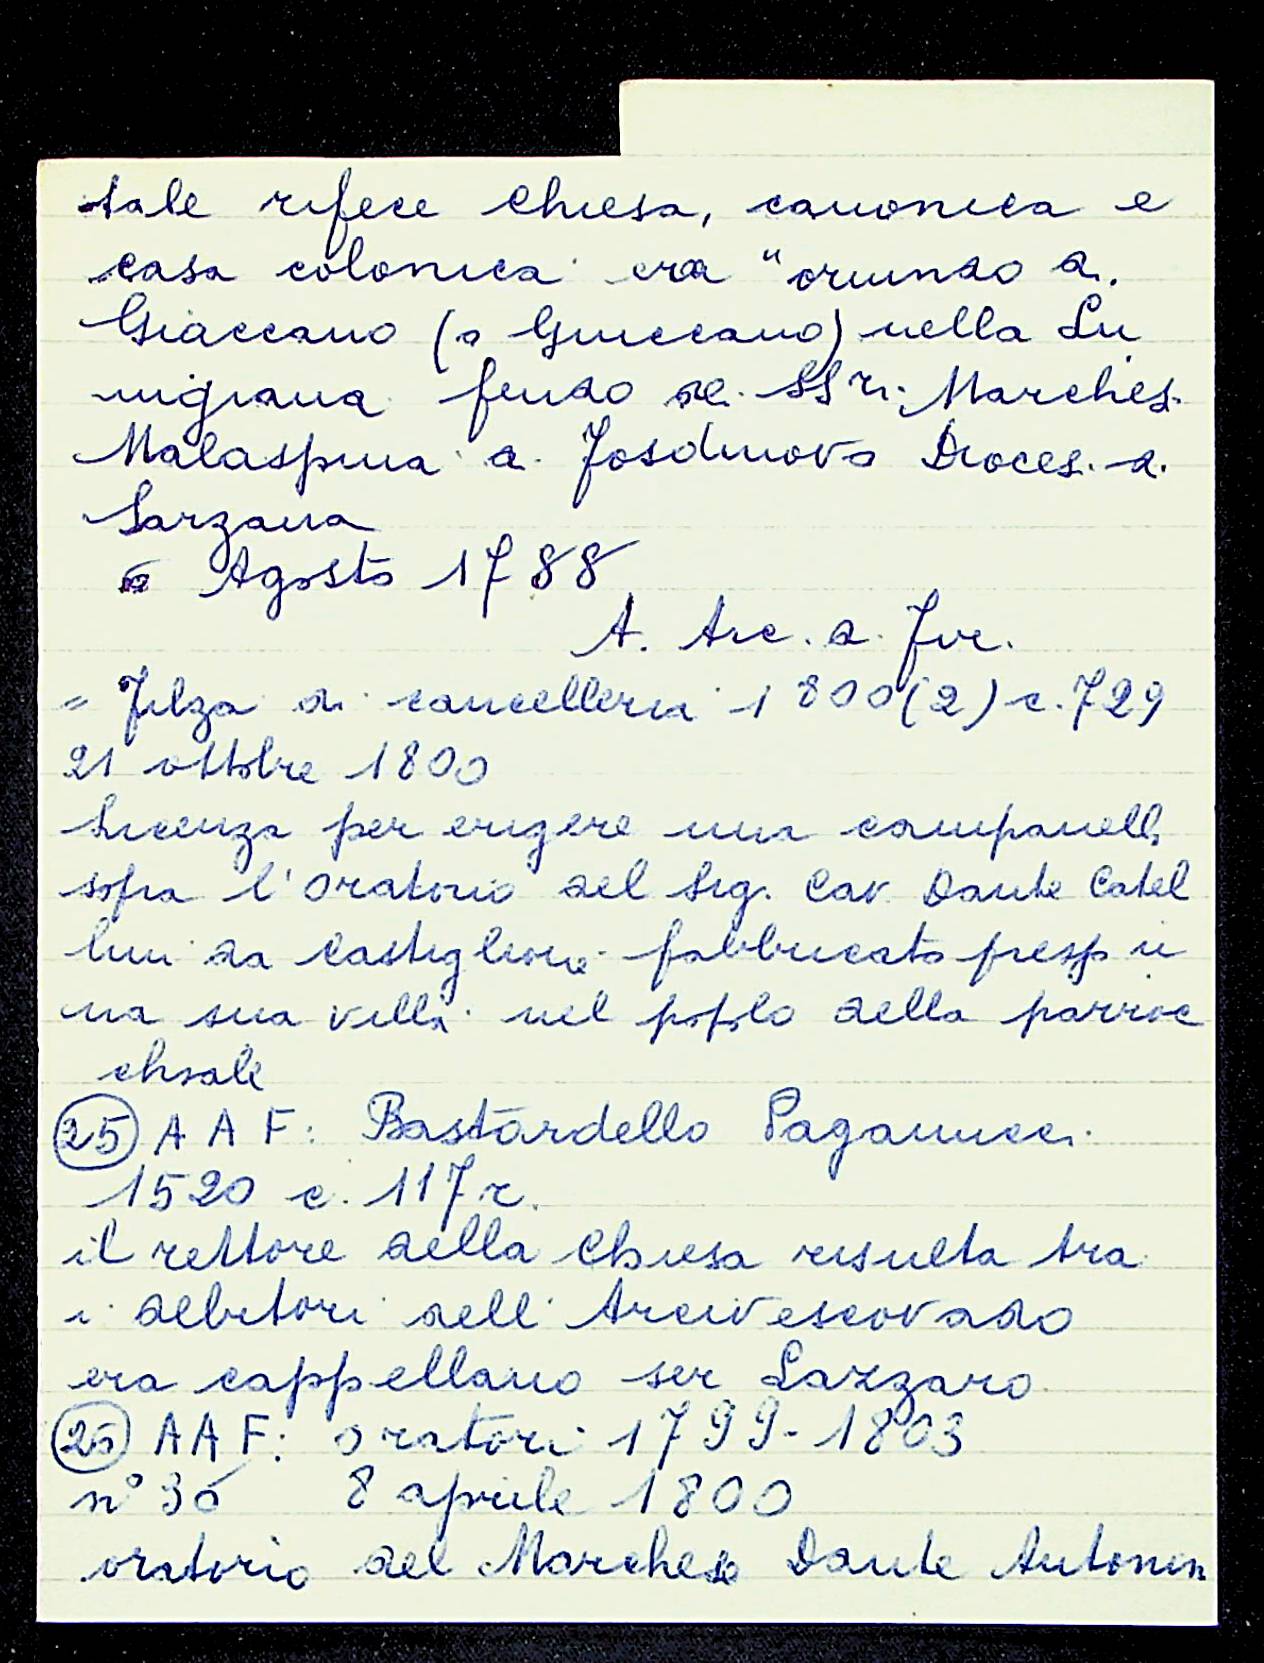 tale rifece chiesa, canonica e
casa colonica era "oriundo di
Giaccano (o Guiccano) nella Lu
nigiana feudo de. SSri. Marches.
Malaspina di Fosdinovo Dioces. di
Sarzana
6 Agosto 1788
A. Arc. di Fir.
= Filza di cancelleria 1800(2) c. 729
21 ottobre 1800
Licenza per erigere una campanella
sopra l'oratorio del Sig. Cav. Dante Catel
lini da Castiglione fabbricato presso u
na sua villa nel popolo della parroc
chiale
(25) A A F: Bastardello Paganucci
1520 c. 117 r.
il rettore della Chiesa risulta tra
i debitori dell'Arcivescovado
era cappellano ser Lazzaro
(26) A A F: oratori 1799-1803
n° 36 8 aprile 1800
oratorio del Marchese Dante Antonin